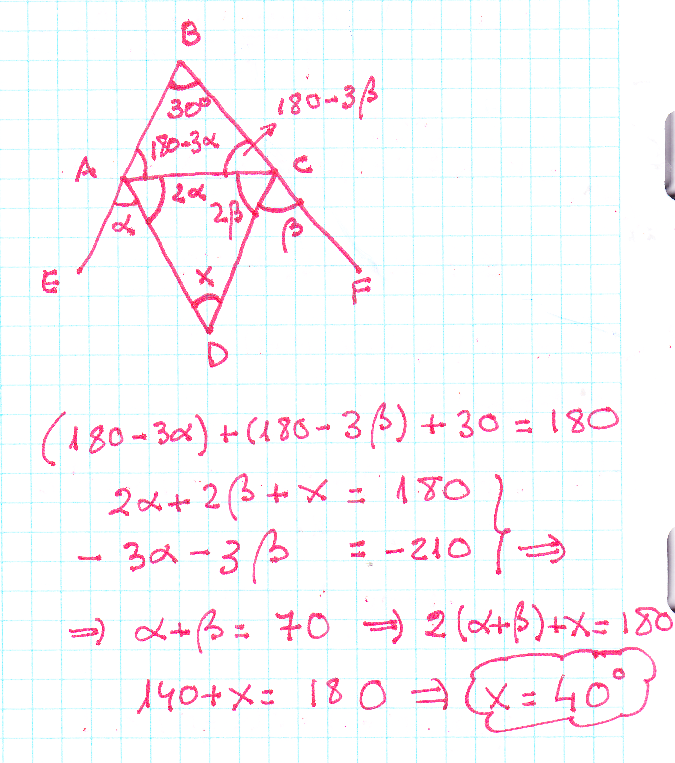 B
30°
180-3β
180-3α
A
C
2α
2β
α
β
E
x
F
D
(180-3α)+(180-3β)+30=180
2α+2β+x=180
-3α-3β=-210 } ⇒
⇒ α+β=70 ⇒ 2(α+β)+x=180
140+x=180 ⇒ x=40°